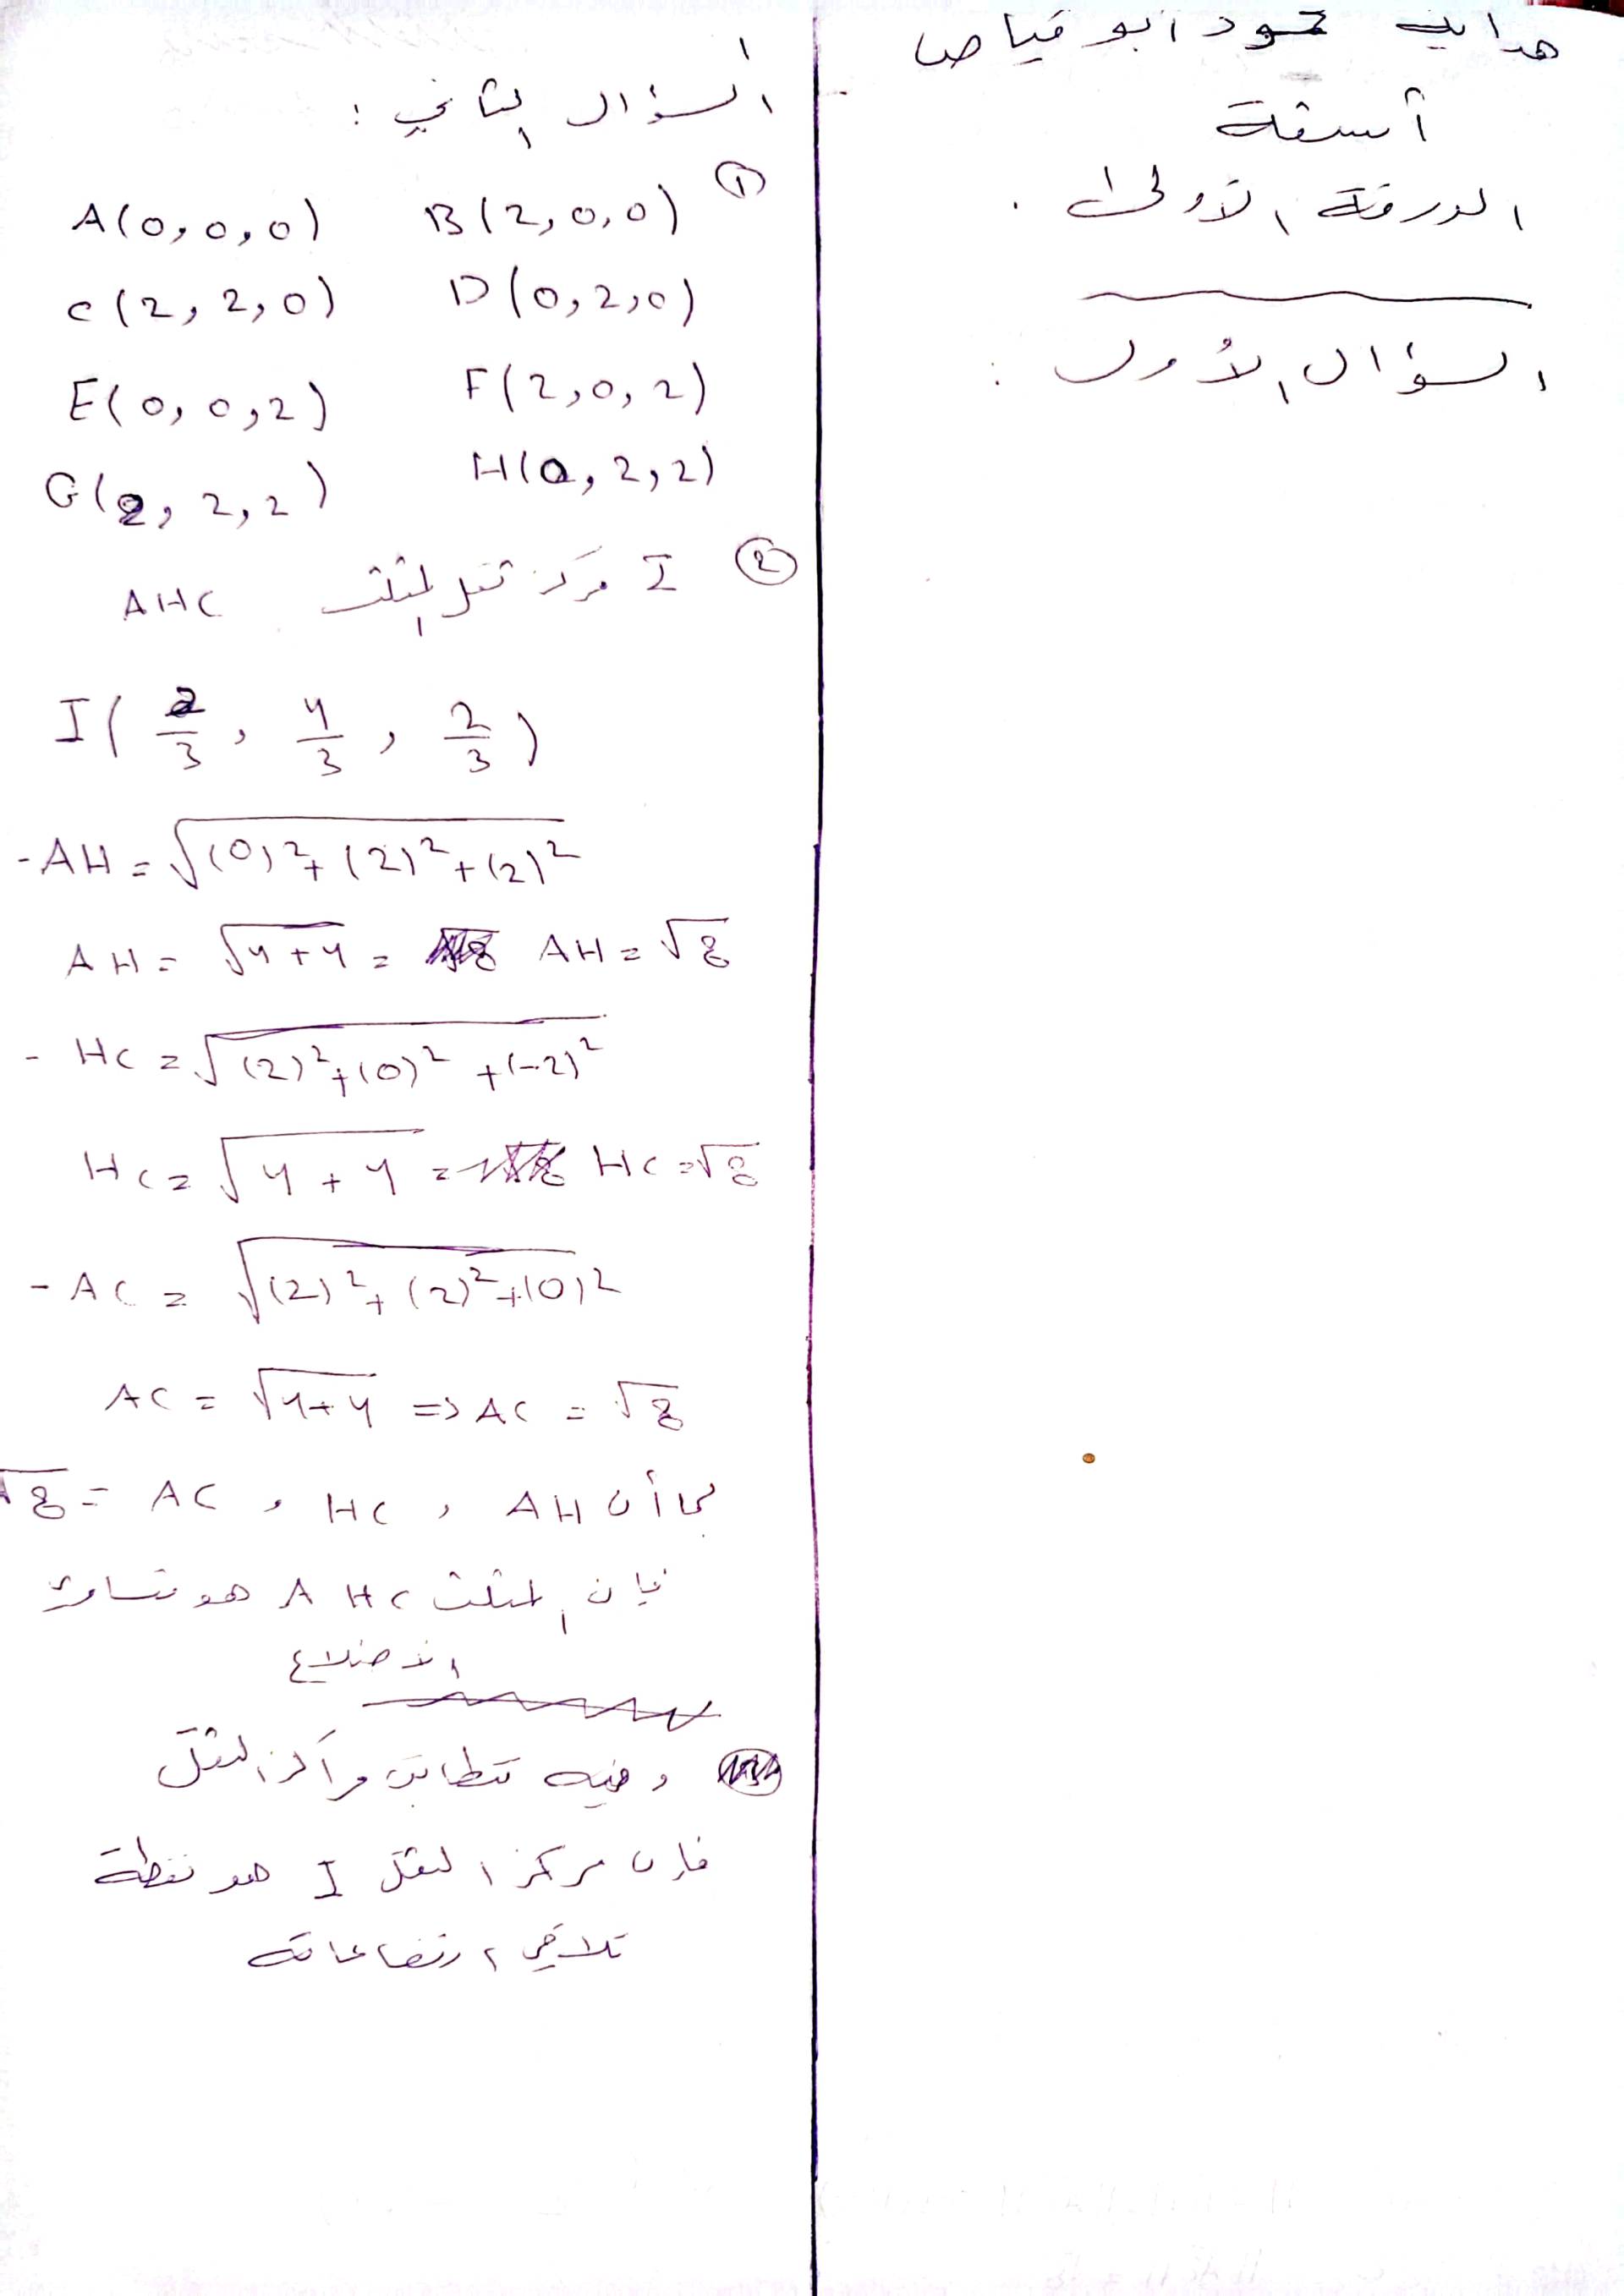 هدايه حمود ابو فياض
أسئلة
الورقة الأولى .
السؤال الأول :
السؤال الثاني :
①
A(0,0,0) B(2,0,0)
C(2,2,0) D(0,2,0)
E(0,0,2) F(2,0,2)
G(2,2,2) H(0,2,2)
② I مركز ثقل المثلث AHC
I(2/3, 4/3, 2/3)
-AH = √(0)²+(2)²+(2)²
AH = √4+4 = AH = √8
- HC = √(2)²+(0)²+(-2)²
HC = √4+4 = HC = √8
- AC = √(2)²+(2)²+(0)²
AC = √4+4 => AC = √8
بما أن AH , HC , AC = √8
فإن المثلث AHC هو متساوي
الأضلاع
وفيه تتطابق مراكز الثقل
فإن مركز الثقل I هو نقطة
تلاقي ارتفاعاته